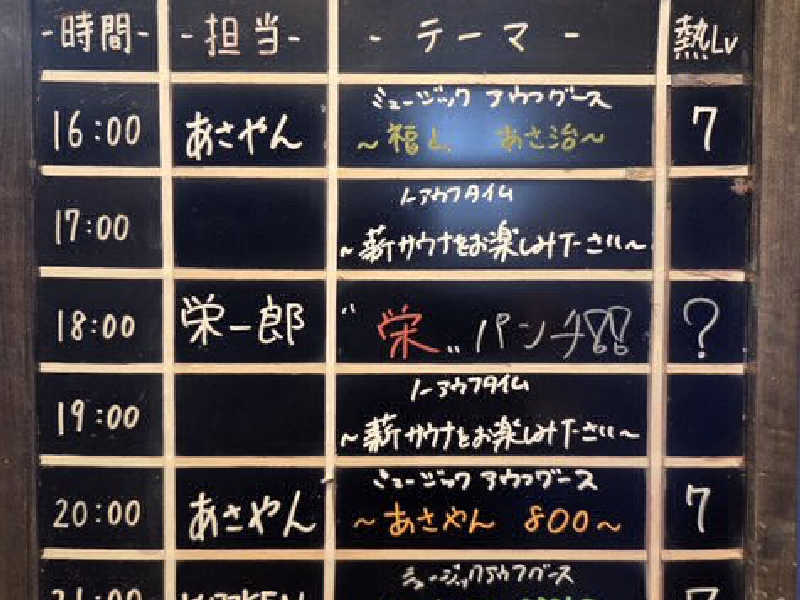 -時間- -担当- - テーマ - 熱Lv
ミュージック アウフグース
16:00 あさやん ～福山 あさ治～ 7
ノーアウフタイム
17:00 ～薪サウナをお楽しみ下さい～
18:00 栄一郎 "栄" パンチ!!! ?
ノーアウフタイム
19:00 ～薪サウナをお楽しみ下さい～
ミュージック アウフグース
20:00 あさやん ～あさやん 800～ 7
ミュージックアウフグース
21:00